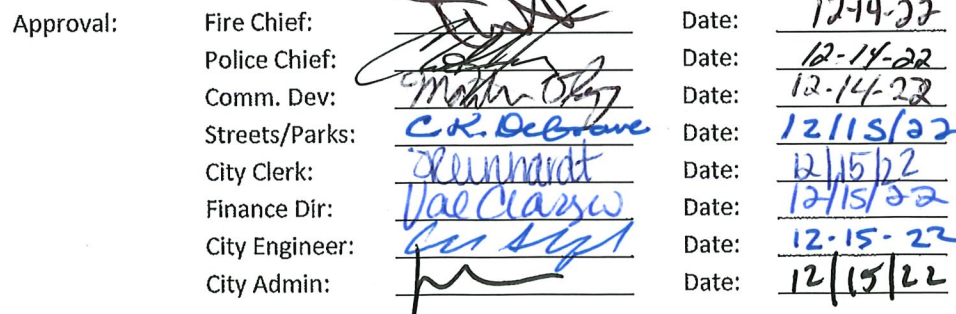 Approval: Fire Chief: Date: 12-14-22
Police Chief: Date: 12-14-22
Comm. Dev: Date: 12-14-22
Streets/Parks: C.K. DeGrave Date: 12/15/22
City Clerk: JReinhardt Date: 12/15/22
Finance Dir: Val Date: 12/15/22
City Engineer: Date: 12-15-22
City Admin: Date: 12/15/22